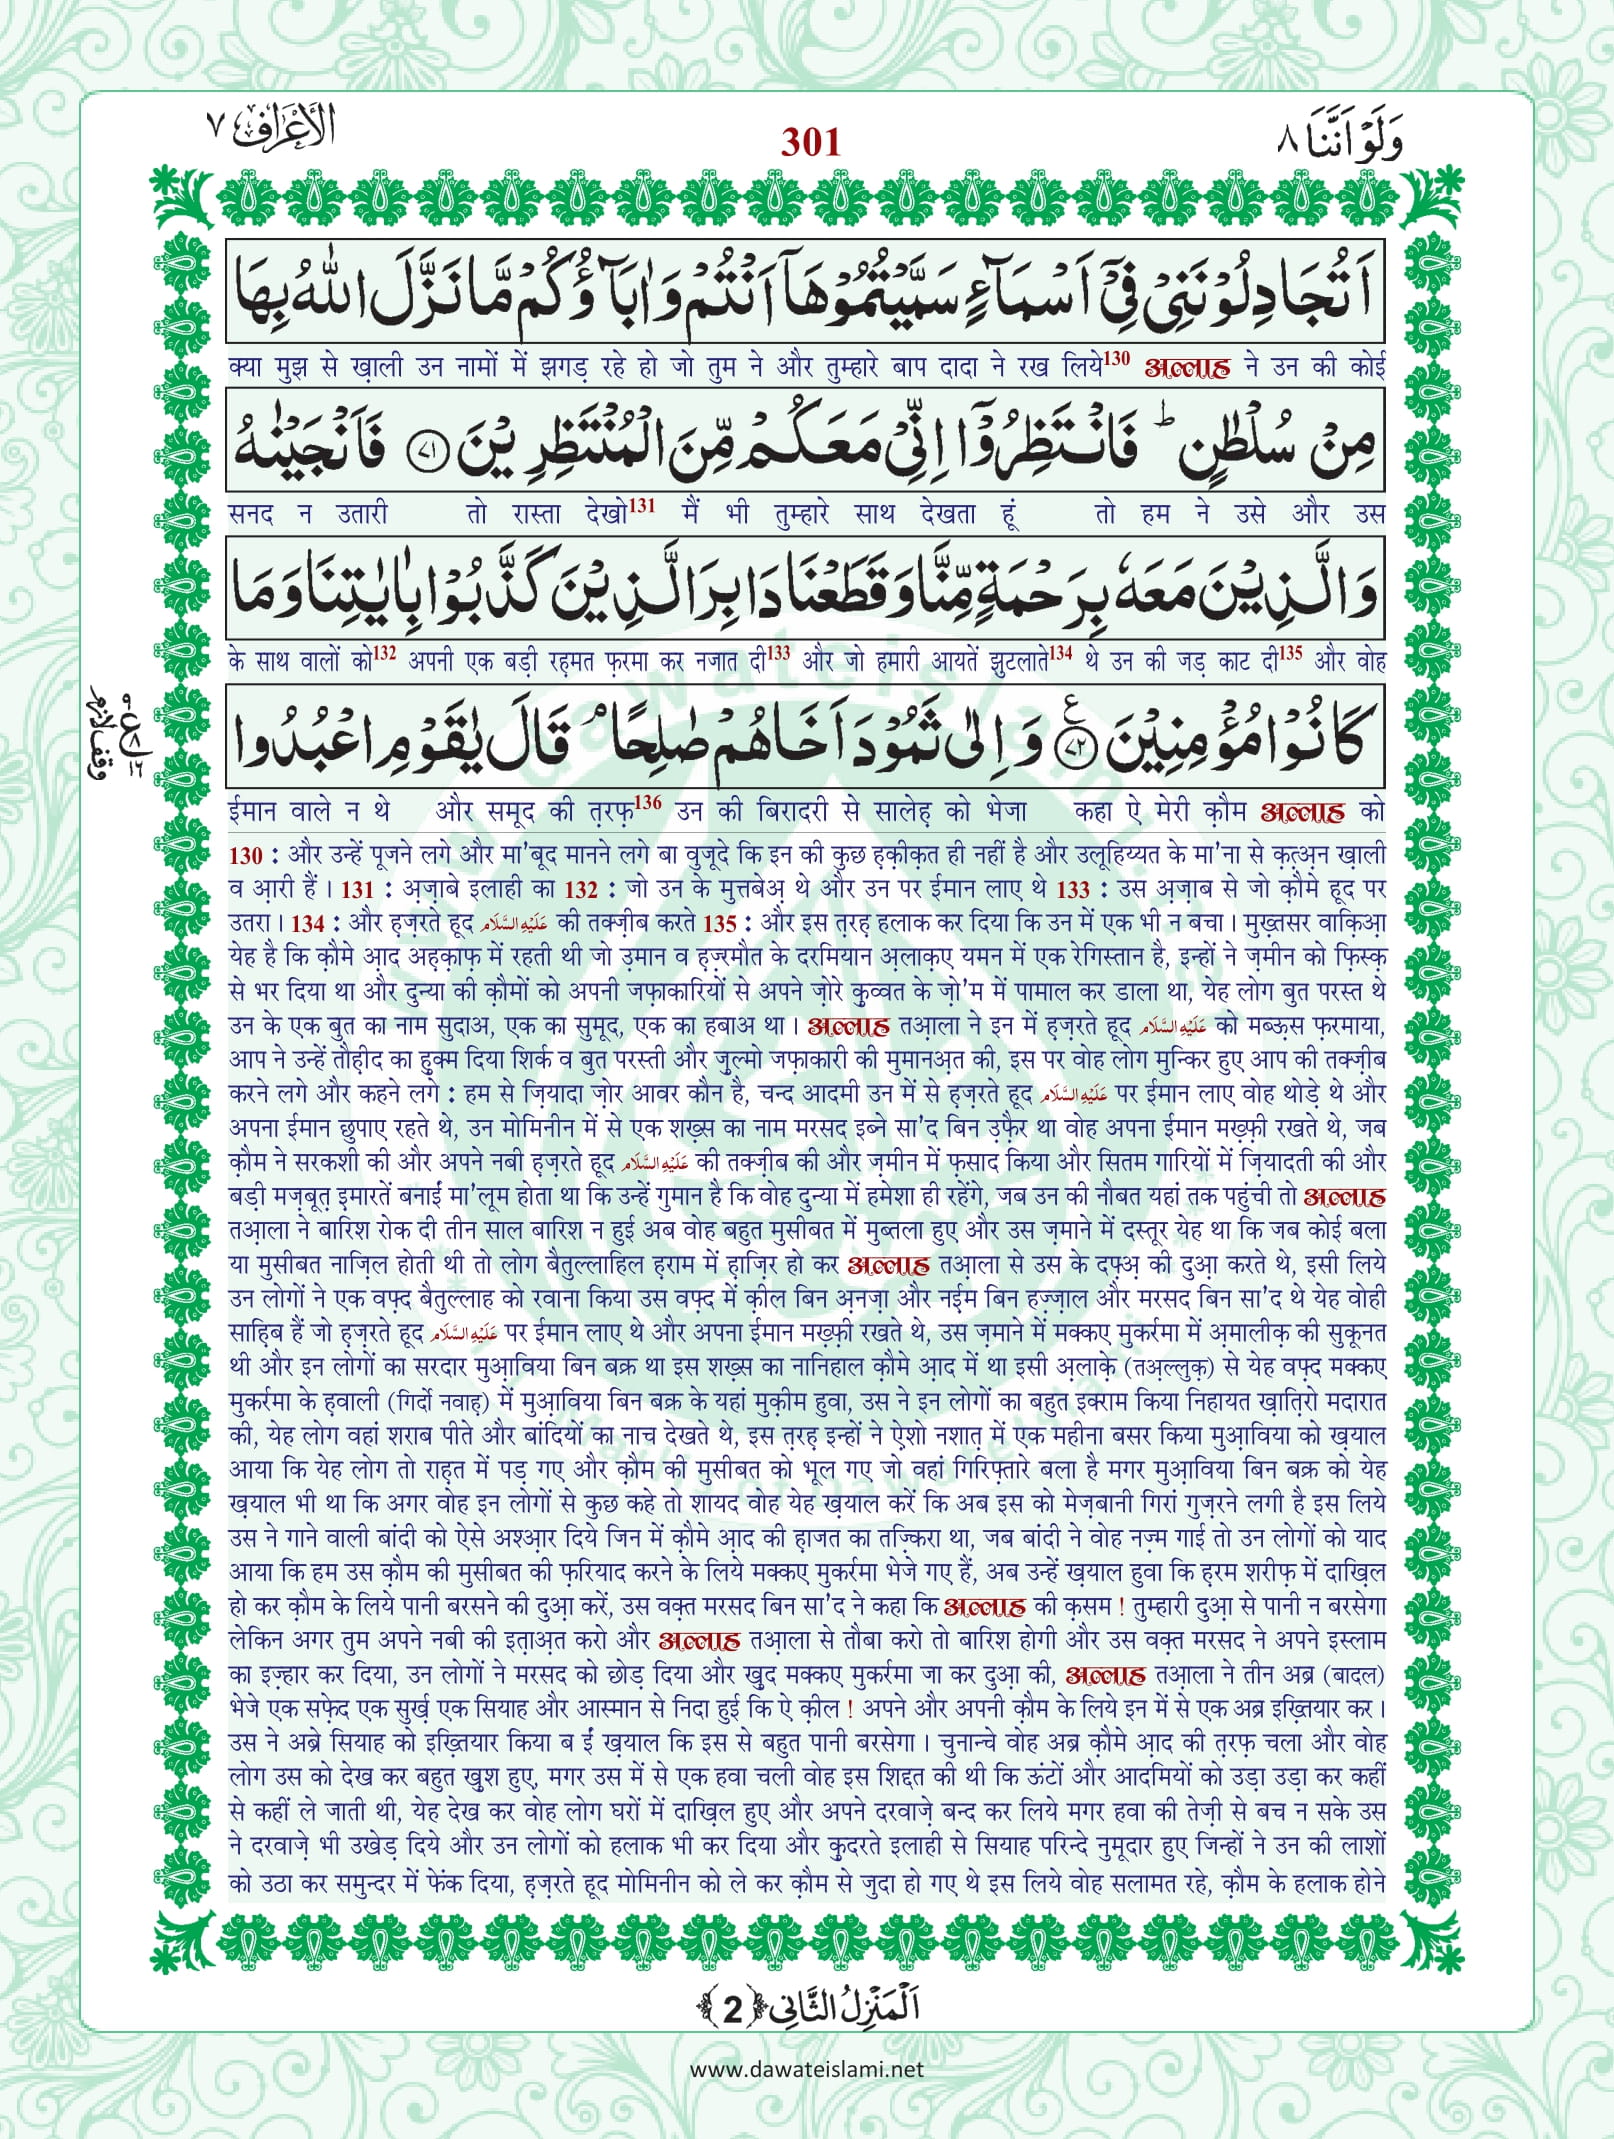 وَلَوْ اَنَّنَا ٨
301
الْاَعْرَاف ٧
اَتُجَادِلُوْنَنِیْ فِیْۤ اَسْمَآءٍ سَمَّیْتُمُوْهَاۤ اَنْتُمْ وَ اٰبَآؤُكُمْ مَّا نَزَّلَ اللّٰهُ بِهَا
क्या मुझ से ख़ाली उन नामों में झगड़ रहे हो जो तुम ने और तुम्हारे बाप दादा ने रख लिये130 अल्लाह ने उन की कोई
مِنْ سُلْطٰنٍ ؕ فَانْتَظِرُوْۤا اِنِّیْ مَعَكُمْ مِّنَ الْمُنْتَظِرِیْنَ ﴿٧١﴾ فَاَنْجَیْنٰهُ
सनद न उतारी तो रास्ता देखो131 मैं भी तुम्हारे साथ देखता हूं तो हम ने उसे और उस
وَ الَّذِیْنَ مَعَهٗ بِرَحْمَةٍ مِّنَّا وَ قَطَعْنَا دَابِرَ الَّذِیْنَ كَذَّبُوْا بِاٰیٰتِنَا وَ مَا
के साथ वालों को132 अपनी एक बड़ी रह़मत फ़रमा कर नजात दी133 और जो हमारी आयतें झुटलाते134 थे उन की जड़ काट दी135 और वोह
كَانُوْا مُؤْمِنِیْنَ ﴿٧٢﴾ ع وَ اِلٰی ثَمُوْدَ اَخَاهُمْ صٰلِحًا ۘ قَالَ یٰقَوْمِ اعْبُدُوا
وقف لازم
ع ٨ ١٦
ईमान वाले न थे और समूद की त़रफ़136 उन की बिरादरी से सालेह़ को भेजा कहा ऐ मेरी क़ौम अल्लाह को
130 : और उन्हें पूजने लगे और मा'बूद मानने लगे बा वुजूदे कि इन की कुछ ह़क़ीक़त ही नहीं है और उलूहिय्यत के मा'ना से क़त़्अन ख़ाली
व आ़री हैं । 131 : अ़ज़ाबे इलाही का 132 : जो उन के मुत्तबेअ़ थे और उन पर ईमान लाए थे 133 : उस अ़ज़ाब से जो क़ौमे हूद पर
उतरा । 134 : और ह़ज़रते हूद عَلَيْهِ السَّلَام की तक्ज़ीब करते 135 : और इस त़रह़ हलाक कर दिया कि उन में एक भी न बचा । मुख़्तसर वाक़िआ़
येह है कि क़ौमे आ़द अह़क़ाफ़ में रहती थी जो उ़मान व ह़ज़्रमौत के दरमियान अ़लाक़ए यमन में एक रेगिस्तान है, इन्हों ने ज़मीन को फ़िस्क़
से भर दिया था और दुन्या की क़ौमों को अपनी जफ़ाकारियों से अपने ज़ोरे क़ुव्वत के ज़ो'म में पामाल कर डाला था, येह लोग बुत परस्त थे
उन के एक बुत का नाम सुदाअ, एक का सुमूद, एक का हबाअ था । अल्लाह तआ़ला ने इन में ह़ज़रते हूद عَلَيْهِ السَّلَام को मब्ऊ़स फ़रमाया,
आप ने उन्हें तौह़ीद का हुक्म दिया शिर्क व बुत परस्ती और ज़ुल्मो जफ़ाकारी की मुमानअ़त की, इस पर वोह लोग मुन्किर हुए आप की तक्ज़ीब
करने लगे और कहने लगे : हम से ज़ियादा ज़ोर आवर कौन है, चन्द आदमी उन में से ह़ज़रते हूद عَلَيْهِ السَّلَام पर ईमान लाए वोह थोड़े थे और
अपना ईमान छुपाए रहते थे, उन मोमिनीन में से एक शख़्स का नाम मरसद इब्ने सा'द बिन उ़फ़ैर था वोह अपना ईमान मख़्फ़ी रखते थे, जब
क़ौम ने सरकशी की और अपने नबी ह़ज़रते हूद عَلَيْهِ السَّلَام की तक्ज़ीब की और ज़मीन में फ़साद किया और सितम गारियों में ज़ियादती की और
बड़ी मज़्बूत़ इमारतें बनाईं मा'लूम होता था कि उन्हें गुमान है कि वोह दुन्या में हमेशा ही रहेंगे, जब उन की नौबत यहां तक पहुंची तो अल्लाह
तआ़ला ने बारिश रोक दी तीन साल बारिश न हुई अब वोह बहुत मुसीबत में मुब्तला हुए और उस ज़माने में दस्तूर येह था कि जब कोई बला
या मुसीबत नाज़िल होती थी तो लोग बैतुल्लाहिल ह़राम में ह़ाज़िर हो कर अल्लाह तआ़ला से उस के दफ़्अ़ की दुआ़ करते थे, इसी लिये
उन लोगों ने एक वफ़्द बैतुल्लाह को रवाना किया उस वफ़्द में क़ील बिन अ़नजा और नईम बिन हज़्ज़ाल और मरसद बिन सा'द थे येह वोही
साह़िब हैं जो ह़ज़रते हूद عَلَيْهِ السَّلَام पर ईमान लाए थे और अपना ईमान मख़्फ़ी रखते थे, उस ज़माने में मक्कए मुकर्रमा में अ़मालीक़ की सुकूनत
थी और इन लोगों का सरदार मुआ़विया बिन बक्र था इस शख़्स का नानिहाल क़ौमे आ़द में था इसी अ़लाक़े (तअ़ल्लुक़) से येह वफ़्द मक्कए
मुकर्रमा के ह़वाली (गिर्दो नवाह़) में मुआ़विया बिन बक्र के यहां मुक़ीम हुवा, उस ने इन लोगों का बहुत इक्राम किया निहायत ख़ात़िरो मदारात
की, येह लोग वहां शराब पीते और बांदियों का नाच देखते थे, इस त़रह़ इन्हों ने ऐ़शो नशात़ में एक महीना बसर किया मुआ़विया को ख़याल
आया कि येह लोग तो राह़त में पड़ गए और क़ौम की मुसीबत को भूल गए जो वहां गिरिफ़्तारे बला है मगर मुआ़विया बिन बक्र को येह
ख़याल भी था कि अगर वोह इन लोगों से कुछ कहे तो शायद वोह येह ख़याल करें कि अब इस को मेज़बानी गिरां गुज़रने लगी है इस लिये
उस ने गाने वाली बांदी को ऐसे अश्आ़र दिये जिन में क़ौमे आ़द की ह़ाजत का तज़्किरा था, जब बांदी ने वोह नज़्म गाई तो उन लोगों को याद
आया कि हम उस क़ौम की मुसीबत की फ़रियाद करने के लिये मक्कए मुकर्रमा भेजे गए हैं, अब उन्हें ख़याल हुवा कि ह़रम शरीफ़ में दाख़िल
हो कर क़ौम के लिये पानी बरसने की दुआ़ करें, उस वक़्त मरसद बिन सा'द ने कहा कि अल्लाह की क़सम ! तुम्हारी दुआ़ से पानी न बरसेगा
लेकिन अगर तुम अपने नबी की इत़ाअ़त करो और अल्लाह तआ़ला से तौबा करो तो बारिश होगी और उस वक़्त मरसद ने अपने इस्लाम
का इज़्हार कर दिया, उन लोगों ने मरसद को छोड़ दिया और ख़ुद मक्कए मुकर्रमा जा कर दुआ़ की, अल्लाह तआ़ला ने तीन अब्र (बादल)
भेजे एक सफ़ेद एक सुर्ख़ एक सियाह और आस्मान से निदा हुई कि ऐ क़ील ! अपने और अपनी क़ौम के लिये इन में से एक अब्र इख़्तियार कर ।
उस ने अब्रे सियाह को इख़्तियार किया ब ईं ख़याल कि इस से बहुत पानी बरसेगा । चुनान्चे वोह अब्र क़ौमे आ़द की त़रफ़ चला और वोह
लोग उस को देख कर बहुत ख़ुश हुए, मगर उस में से एक हवा चली वोह इस शिद्दत की थी कि ऊंटों और आदमियों को उड़ा उड़ा कर कहीं
से कहीं ले जाती थी, येह देख कर वोह लोग घरों में दाख़िल हुए और अपने दरवाज़े बन्द कर लिये मगर हवा की तेज़ी से बच न सके उस
ने दरवाज़े भी उखेड़ दिये और उन लोगों को हलाक भी कर दिया और क़ुदरते इलाही से सियाह परिन्दे नुमूदार हुए जिन्हों ने उन की लाशों
को उठा कर समुन्दर में फेंक दिया, ह़ज़रते हूद मोमिनीन को ले कर क़ौम से जुदा हो गए थे इस लिये वोह सलामत रहे, क़ौम के हलाक होने
اَلْمَنْزِلُ الثَّانِی ﴿2﴾
www.dawateislami.net